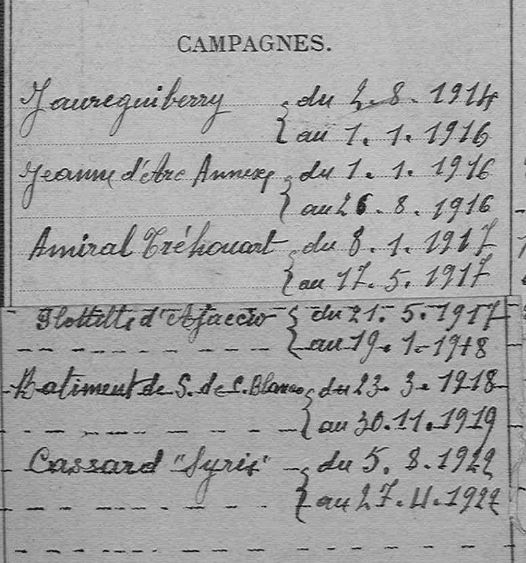 CAMPAGNES.
Jaureguiberry { du 2. 8. 1914
au 1. 1. 1916
Jeanne d'Arc Annexe { du 1. 1. 1916
au 26. 8. 1916
Amiral Tréhouart { du 8. 1. 1917
au 17. 5. 1917
Flottille d'Ajaccio { du 21. 5. 1917
au 19. 1. 1918
Batiment de S. de C. Blanco { du 23. 3. 1918
au 30. 11. 1919
Cassard "Syrie" { du 5. 8. 1922
au 27. 4. 1922